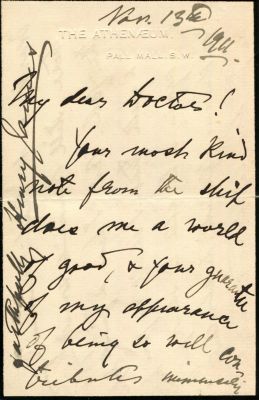 Nov. 13th
1911.
THE ATHENÆUM.
PALL MALL. S.W.
My dear Doctor!
Your most kind
note from the ship
does me a world
of good, & your guarantee
of my appearance
of being so well con
tributes immensely
faithfully Henry James